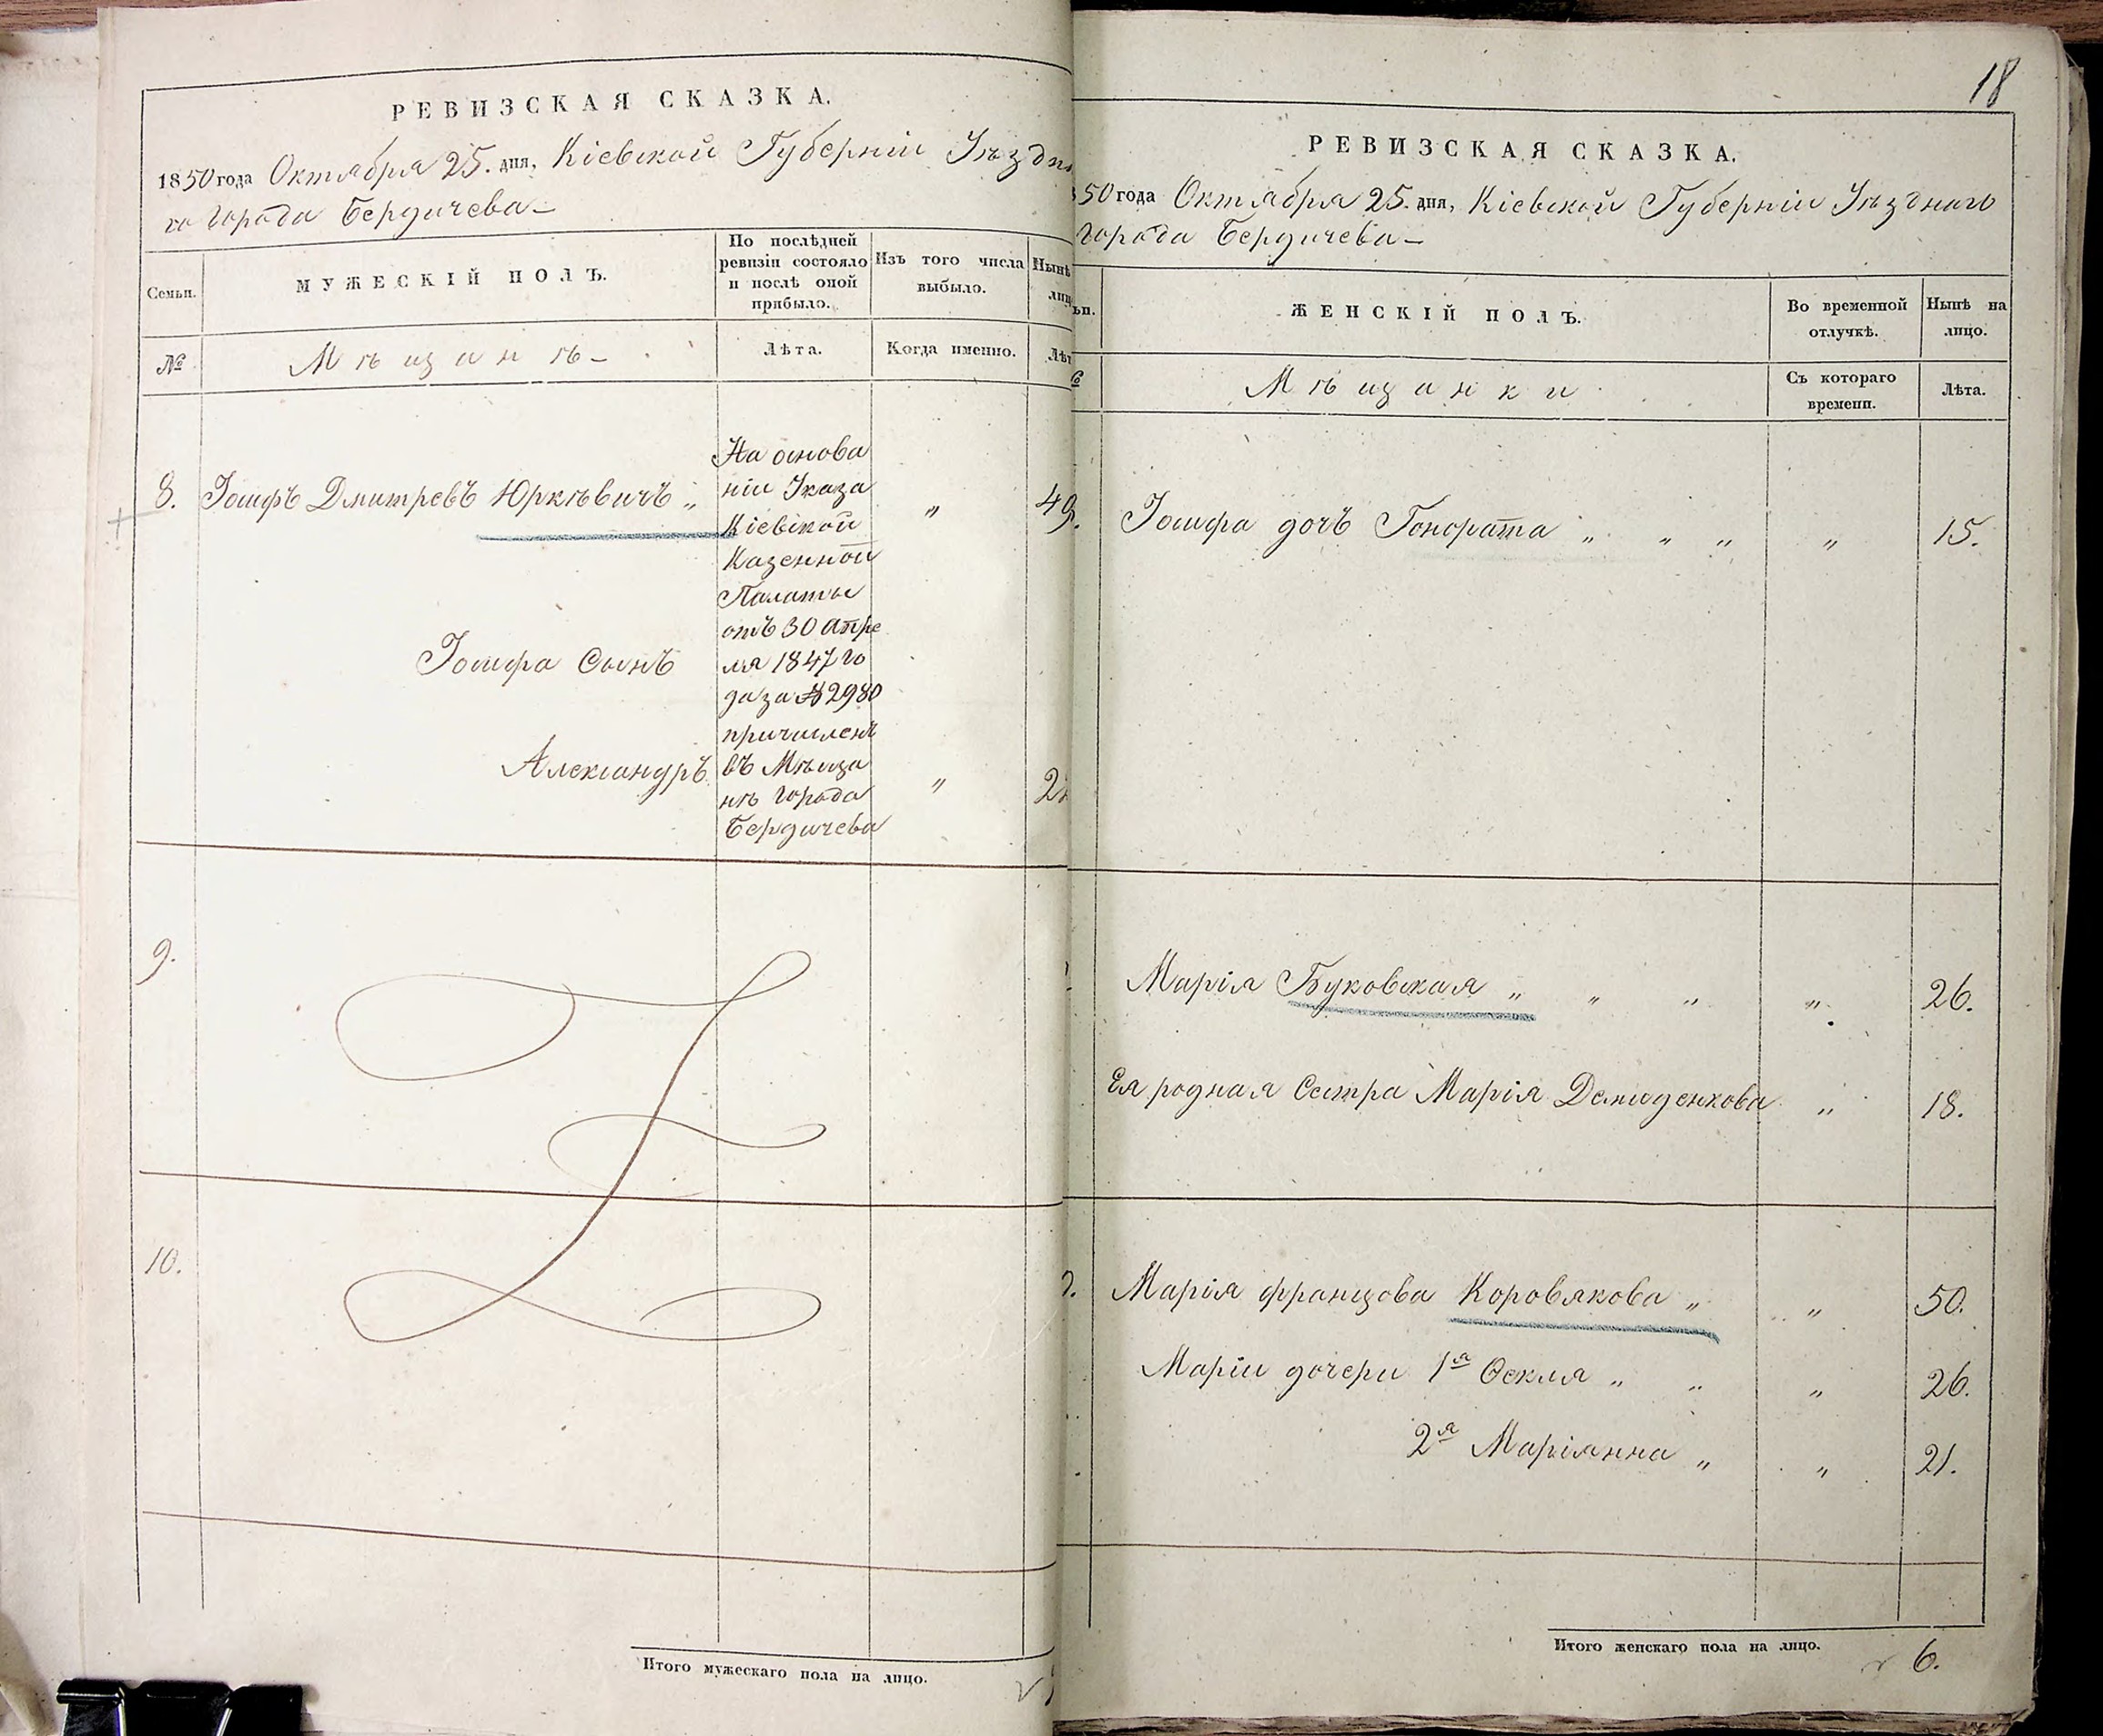 РЕВИЗСКАЯ СКАЗКА.
1850 года Октября 25. дня, Кіевской Губерніи Уѣздна
го города Бердичева
Семьи.
МУЖЕСКІЙ ПОЛЪ.
По послѣдней
ревизіи состояло
и послѣ оной
прибыло.
Изъ того числа
выбыло.
Нынѣ
лиц
№
Мѣщанѣ
Лѣта.
Когда именно.
Лѣт
8.
Іосифъ Дмитревъ Юркѣвичъ „
На основа
ніи Указа
Кіевской
Казенной
Палаты
отъ 30 апре
ля 1847 го
да за № 2980
причисленъ
въ Мѣща
нѣ города
Бердичева
„
49.
Іосифа Сынъ
Александръ
„
9.
10.
Итого мужескаго пола на лицо.
18
РЕВИЗСКАЯ СКАЗКА.
50 года Октября 25. дня, Кіевской Губерніи Уѣзднаго
города Бердичева
ьи.
ЖЕНСКІЙ ПОЛЪ.
Во временной
отлучкѣ.
Нынѣ на
лицо.
Мѣщанки
Съ котораго
времени.
Лѣта.
Іосифа дочь Гонората „ „ „ „ 15.
Марія Буковская „ „ „ „ 26.
Ея родная Сестра Марія Демиденкова „ 18.
Марія францова Коровякова „ „ 50.
Маріи дочери 1я Ѳекла „ „ „ 26.
2я Маріянна „ „ 21.
Итого женскаго пола на лицо. 6.